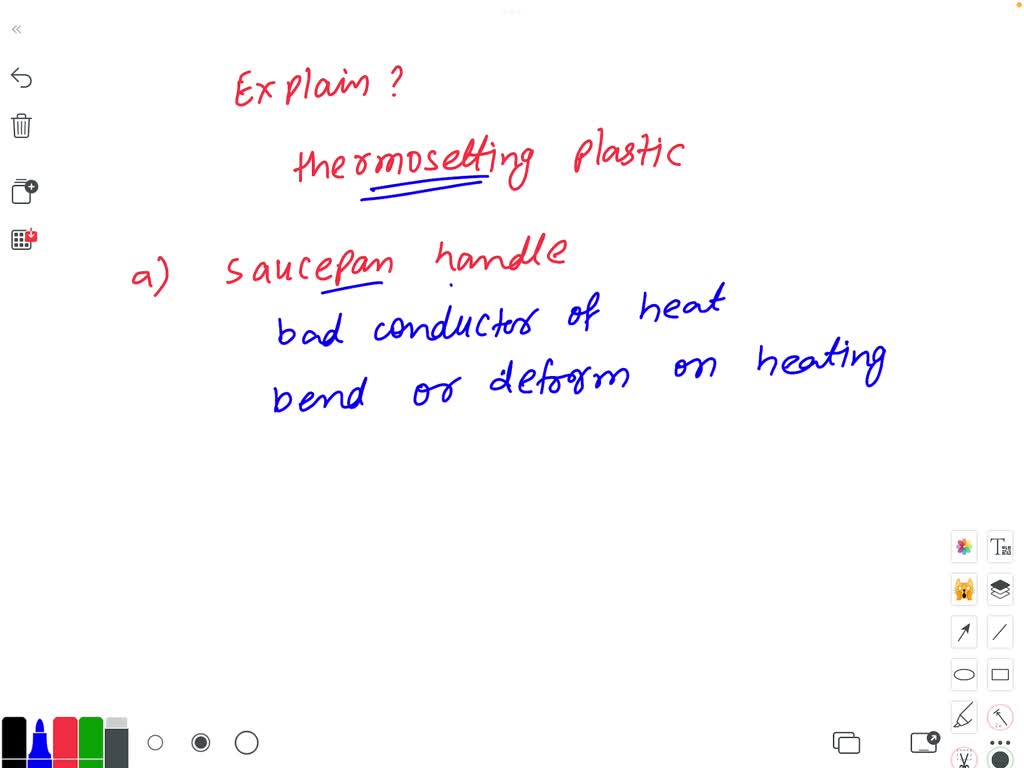 Explain ?
thermosetting plastic
a) saucepan handle
bad conductor of heat
bend or deform on heating